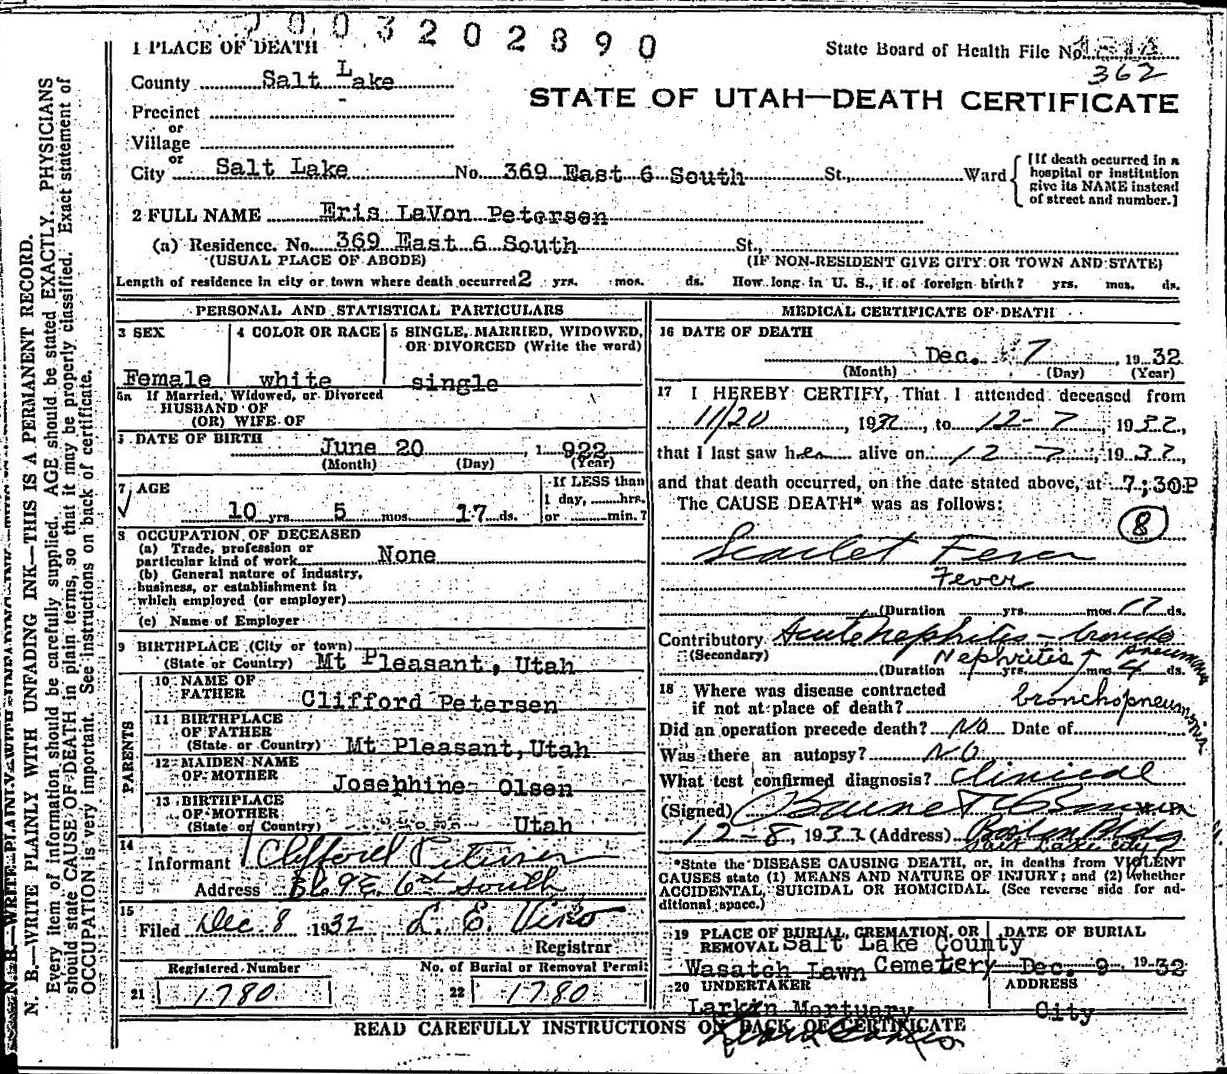 2003202890
1 PLACE OF DEATH
State Board of Health File No.
County Salt Lake
362
STATE OF UTAH—DEATH CERTIFICATE
Precinct
or
Village
or
City Salt Lake No. 369 East 6 South St., Ward
[If death occurred in a hospital or institution give its NAME instead of street and number.]
2 FULL NAME Eris LaVon Petersen
(a) Residence. No. 369 East 6 South St.,
(USUAL PLACE OF ABODE) (IF NON-RESIDENT GIVE CITY OR TOWN AND STATE)
Length of residence in city or town where death occurred 2 yrs. mos. ds. How long in U. S., if of foreign birth? yrs. mos. ds.
PERSONAL AND STATISTICAL PARTICULARS
3 SEX 4 COLOR OR RACE 5 SINGLE, MARRIED, WIDOWED, OR DIVORCED (Write the word)
Female white single
5a If Married, Widowed, or Divorced
HUSBAND OF
(OR) WIFE OF
6 DATE OF BIRTH June 20, 1922
(Month) (Day) (Year)
7 AGE
10 yrs. 5 mos. 17 ds.
If LESS than
1 day, hrs.
or min.?
8 OCCUPATION OF DECEASED
(a) Trade, profession or
particular kind of work None
(b) General nature of industry,
business, or establishment in
which employed (or employer)
(c) Name of Employer
9 BIRTHPLACE (City or town)
(State or Country) Mt Pleasant, Utah
PARENTS
10 NAME OF
FATHER Clifford Petersen
11 BIRTHPLACE
OF FATHER
(State or Country) Mt Pleasant, Utah
12 MAIDEN NAME
OF MOTHER Josephine Olsen
13 BIRTHPLACE
OF MOTHER
(State or Country) Utah
14
Informant Clifford Petersen
Address 369 E. 6th South
15
Filed Dec 8 1932
Registrar
Registered Number No. of Burial or Removal Permit
21 1780 22 1780
MEDICAL CERTIFICATE OF DEATH
16 DATE OF DEATH
Dec. 7, 1932
(Month) (Day) (Year)
17 I HEREBY CERTIFY, That I attended deceased from
11/20, 1932, to 12-7, 1932,
that I last saw her alive on 12 7, 1932,
and that death occurred, on the date stated above, at 7:30P
The CAUSE DEATH* was as follows:
8
Scarlet Fever
Fever
(Duration yrs. mos. 17 ds.
Contributory Acute nephritis - broncho
(Secondary) Nephritis pneumonia
(Duration yrs. mos. 4 ds.
18 Where was disease contracted
if not at place of death? bronchopneumonia
Did an operation precede death? No Date of
Was there an autopsy? NO
What test confirmed diagnosis? clinical
(Signed) M.D.
12-8, 1933 (Address) Boston Bldg
Salt Lake City
*State the DISEASE CAUSING DEATH, or, in deaths from VIOLENT
CAUSES state (1) MEANS AND NATURE OF INJURY; and (2) whether
ACCIDENTAL, SUICIDAL OR HOMICIDAL. (See reverse side for ad-
ditional space.)
19 PLACE OF BURIAL, CREMATION, OR DATE OF BURIAL
REMOVAL Salt Lake County
Wasatch Lawn Cemetery Dec. 9 1932
20 UNDERTAKER ADDRESS
Larkin Mortuary City
READ CAREFULLY INSTRUCTIONS ON BACK OF CERTIFICATE
N. B.—WRITE PLAINLY WITH UNFADING INK—THIS IS A PERMANENT RECORD.
Every item of information should be carefully supplied. AGE should be stated EXACTLY. PHYSICIANS
should state CAUSE OF DEATH in plain terms, so that it may be properly classified. Exact statement of
OCCUPATION is very important. See instructions on back of certificate.